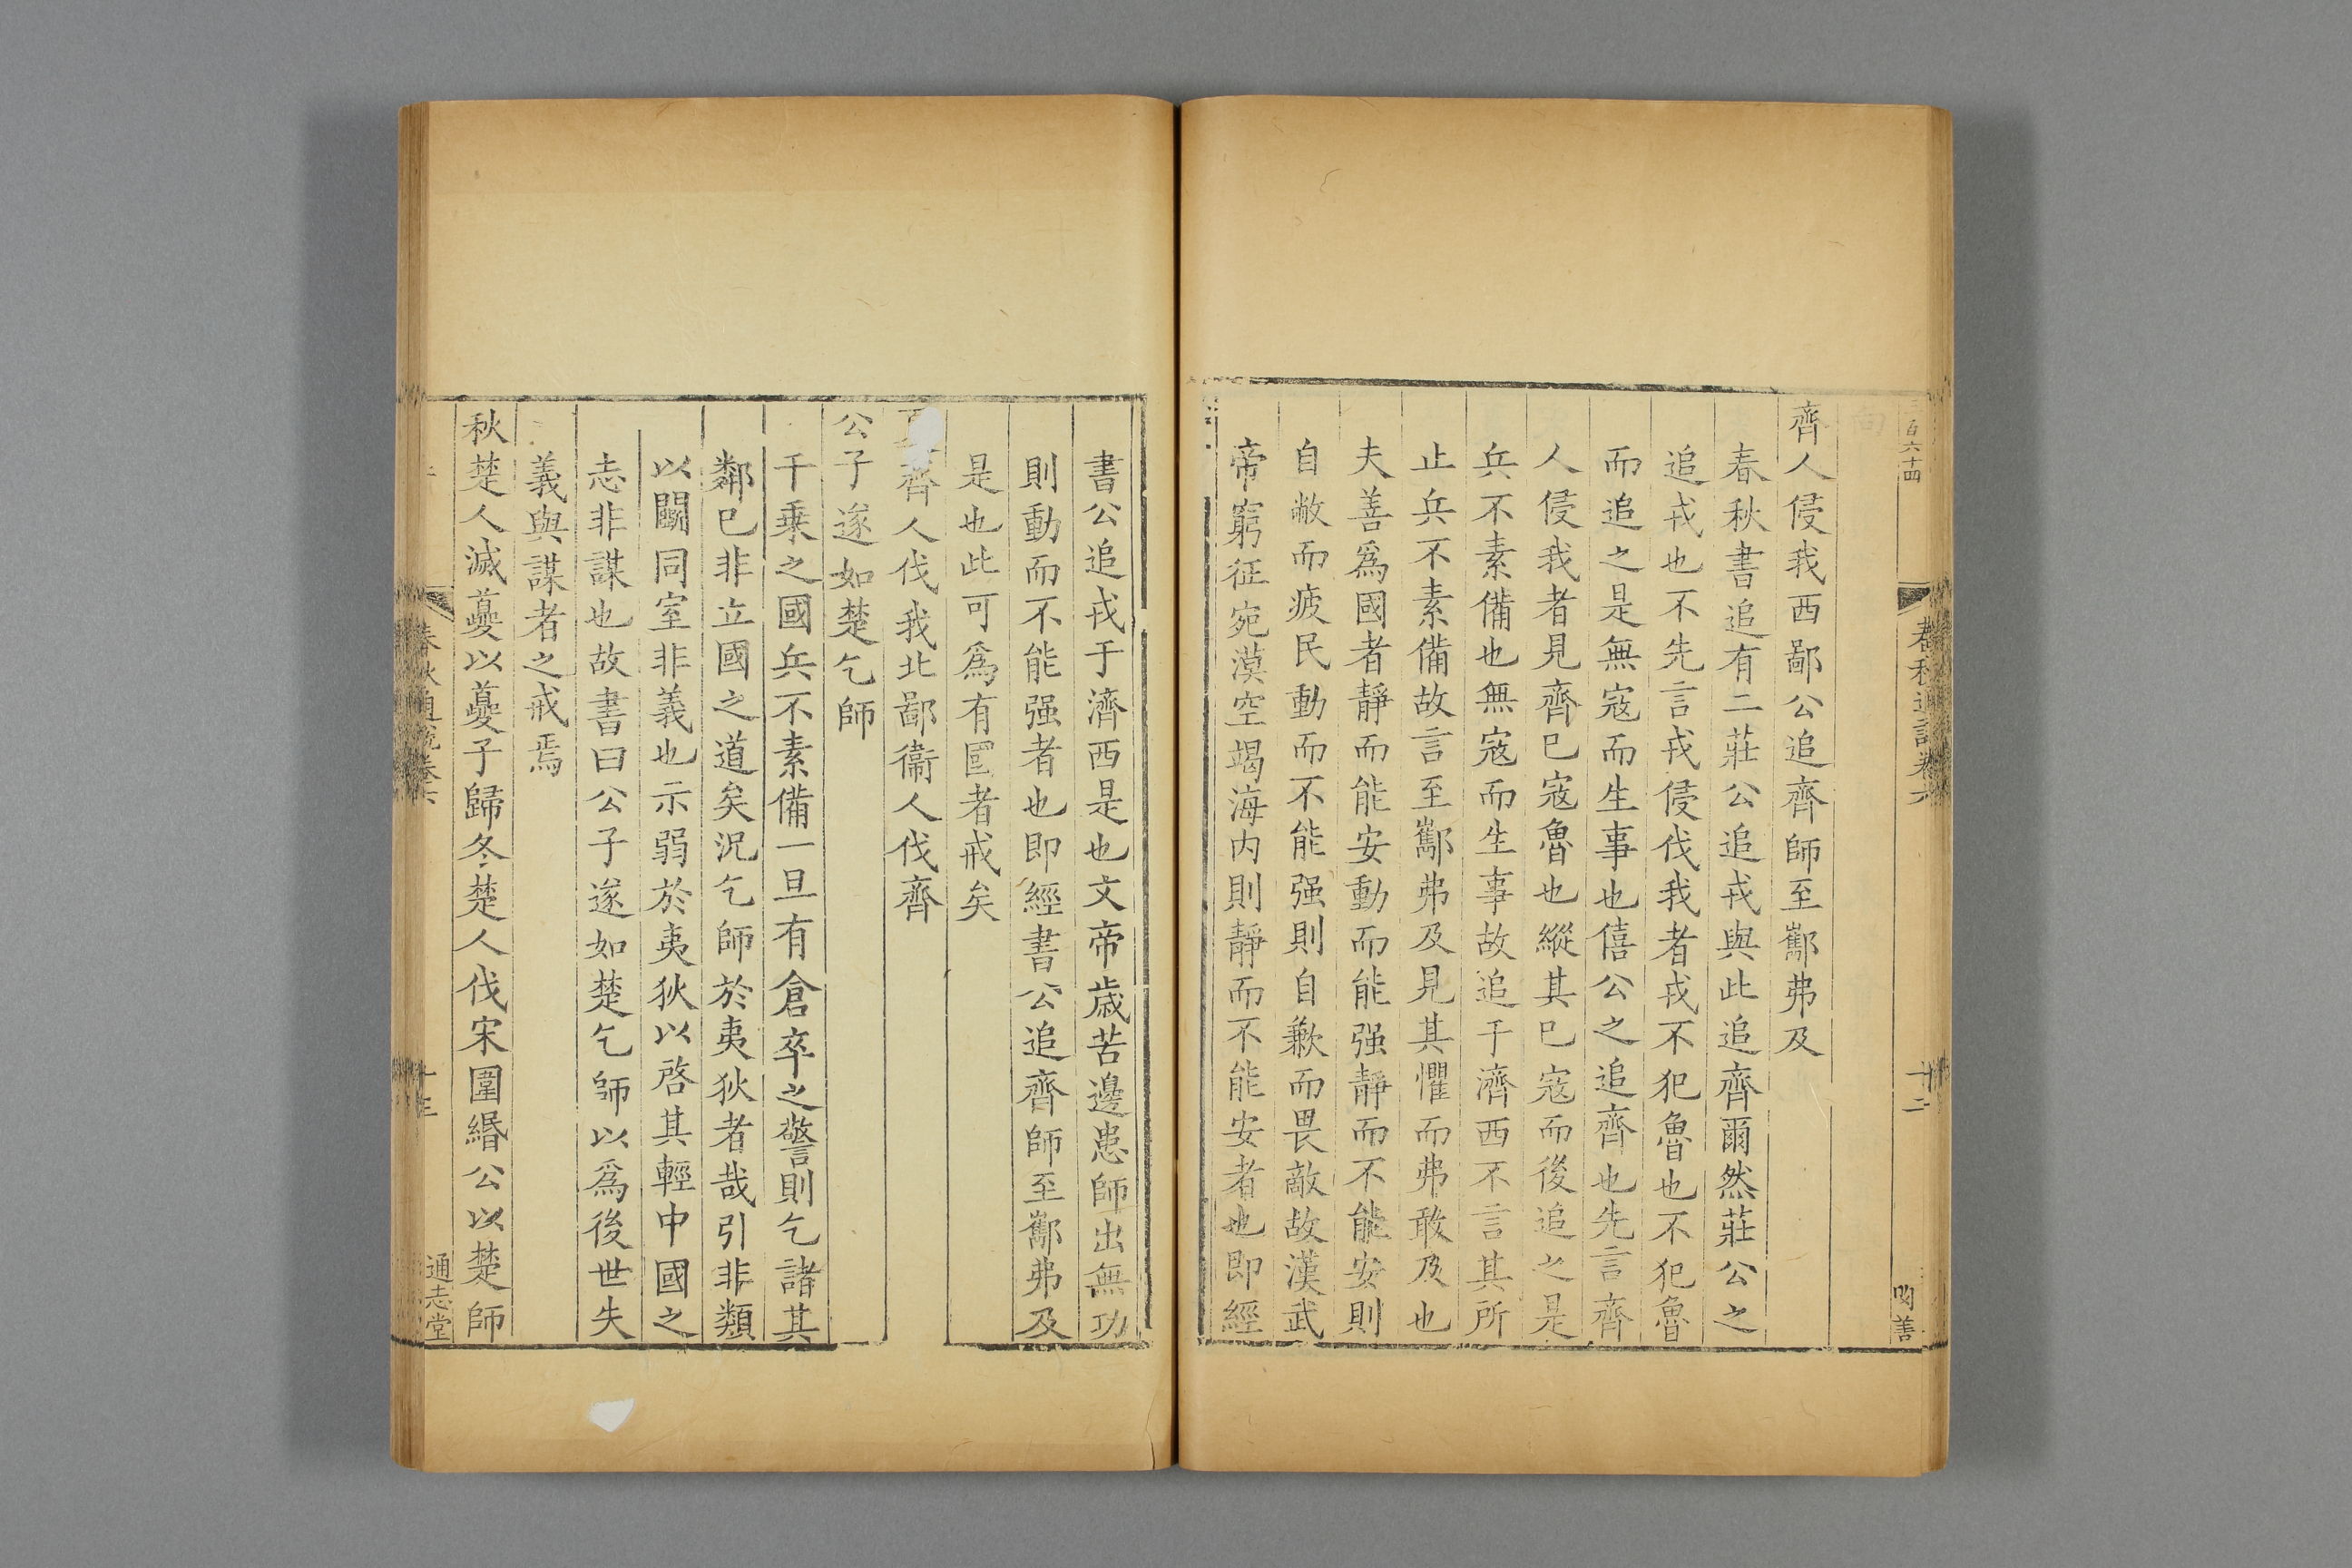 向
齊人侵我西鄙公追齊師至酅弗及
春秋書追有二莊公追戎與此追齊爾然莊公之
追戎也不先言戎侵伐我者戎不犯魯也不犯魯
而追之是無寇而生事也僖公之追齊也先言齊
人侵我者見齊已寇魯也縱其已寇而後追之是
兵不素備也無寇而生事故追于濟西不言其所
止兵不素備故言至酅弗及見其懼而弗敢及也
夫善爲國者靜而能安動而能强靜而不能安則
自敝而疲民動而不能强則自歉而畏敵故漢武
帝窮征宛漠空竭海内則靜而不能安者也即經
書公追戎于濟西是也文帝歲苦邊患師出無功
則動而不能强者也即經書公追齊師至酅弗及
是也此可爲有國者戒矣
齊人伐我北鄙衞人伐齊
公子遂如楚乞師
千乗之國兵不素備一旦有倉卒之警則乞諸其
鄰已非立國之道矣況乞師於夷狄者哉引非類
以鬭同室非義也示弱於夷狄以啓其輕中國之
志非謀也故書曰公子遂如楚乞師以爲後世失
義與謀者之戒焉
秋楚人滅夔以夔子歸冬楚人伐宋圍緡公以楚師
春秋通說卷六
十三
通志堂